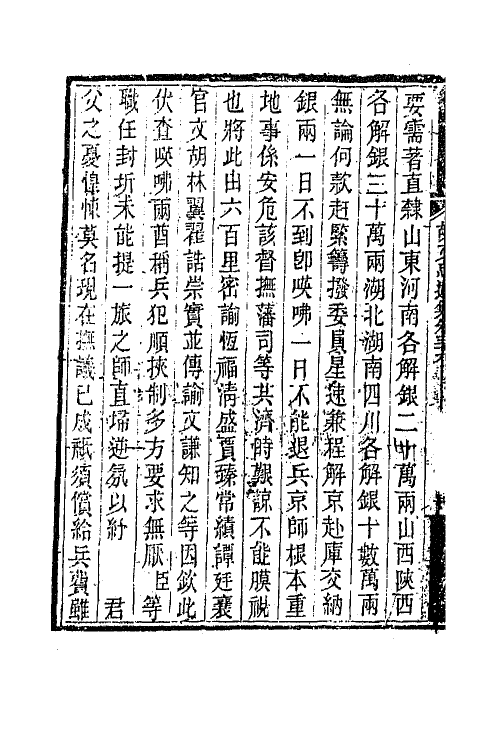 要需著直隸山東河南各解銀二十萬兩山西陝西
各解銀三十萬兩湖北湖南四川各解銀十數萬兩
無論何款赶緊籌撥委員星速兼程解京赴庫交納
銀兩一日不到卽㖫咈一日不能退兵京師根本重
地事係安危該督撫藩司等共濟時艱諒不能膜視
也將此由六百里密諭恆福淸盛賈臻常績譚廷襄
官文胡林翼翟誥崇實並傳諭文謙知之等因欽此
伏查㖫咈兩酋稱兵犯順挾制多方要求無厭臣等
職任封圻未能提一旅之師直埽逆氛以紓　　君
父之憂惶悚莫名現在撫議已成祗須償給兵費雖